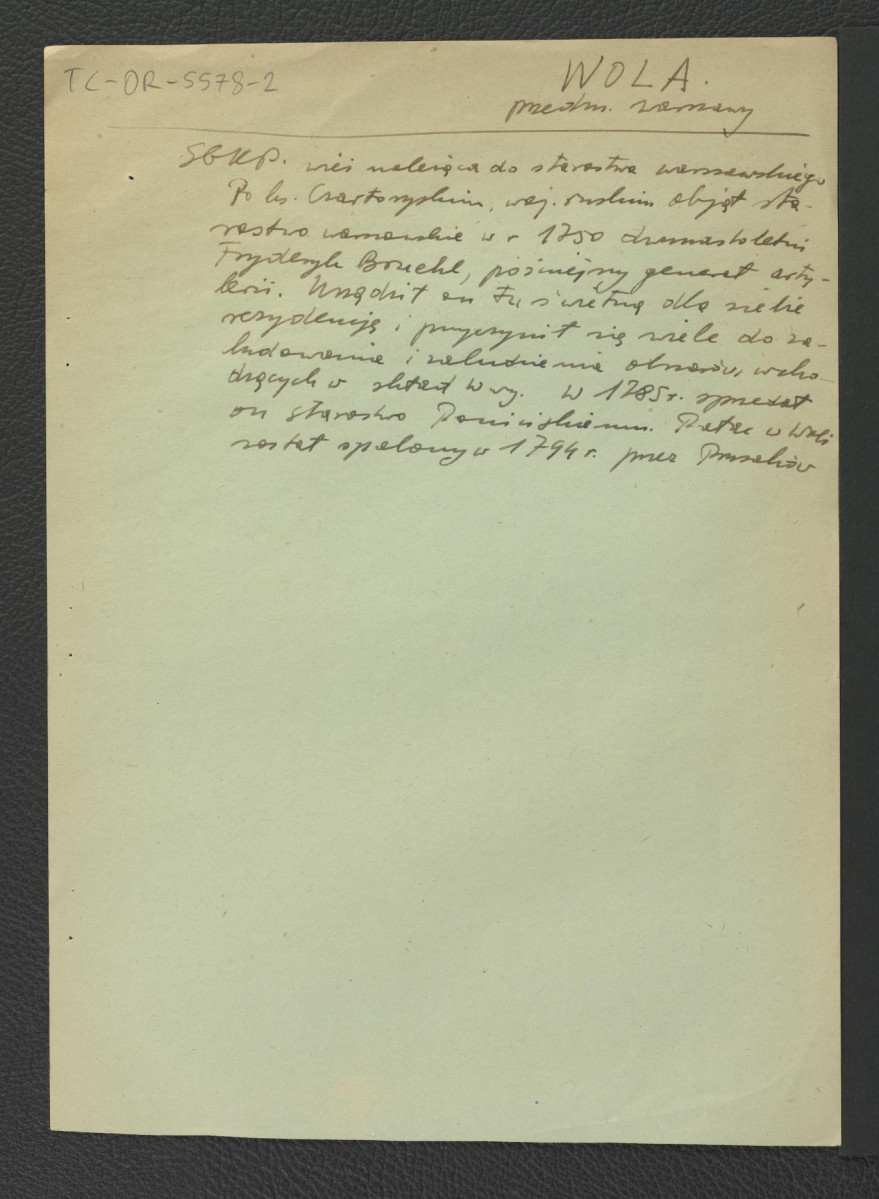 TC-OR-5578-2
WOLA.
przedm. warszawy
SGKP. wieś należąca do starostwa warszawskiego
Po ks. Czartoryskim, woj. ruskim objął sta-
rostwo warszawskie w r 1750 dwunastoletni
Fryderyk Bruehl, późniejszy generał arty-
lerii. Urządził on tu świetną dla siebie
rezydencją i przyczynił się wiele do za-
budowania i zaludnienia obszarów, wcho-
dzących w skład Wwy. W 1785 r. sprzedał
on starostwo Ponińskiemu. Pałac w Woli
został spalony w 1794 r. przez Prusaków